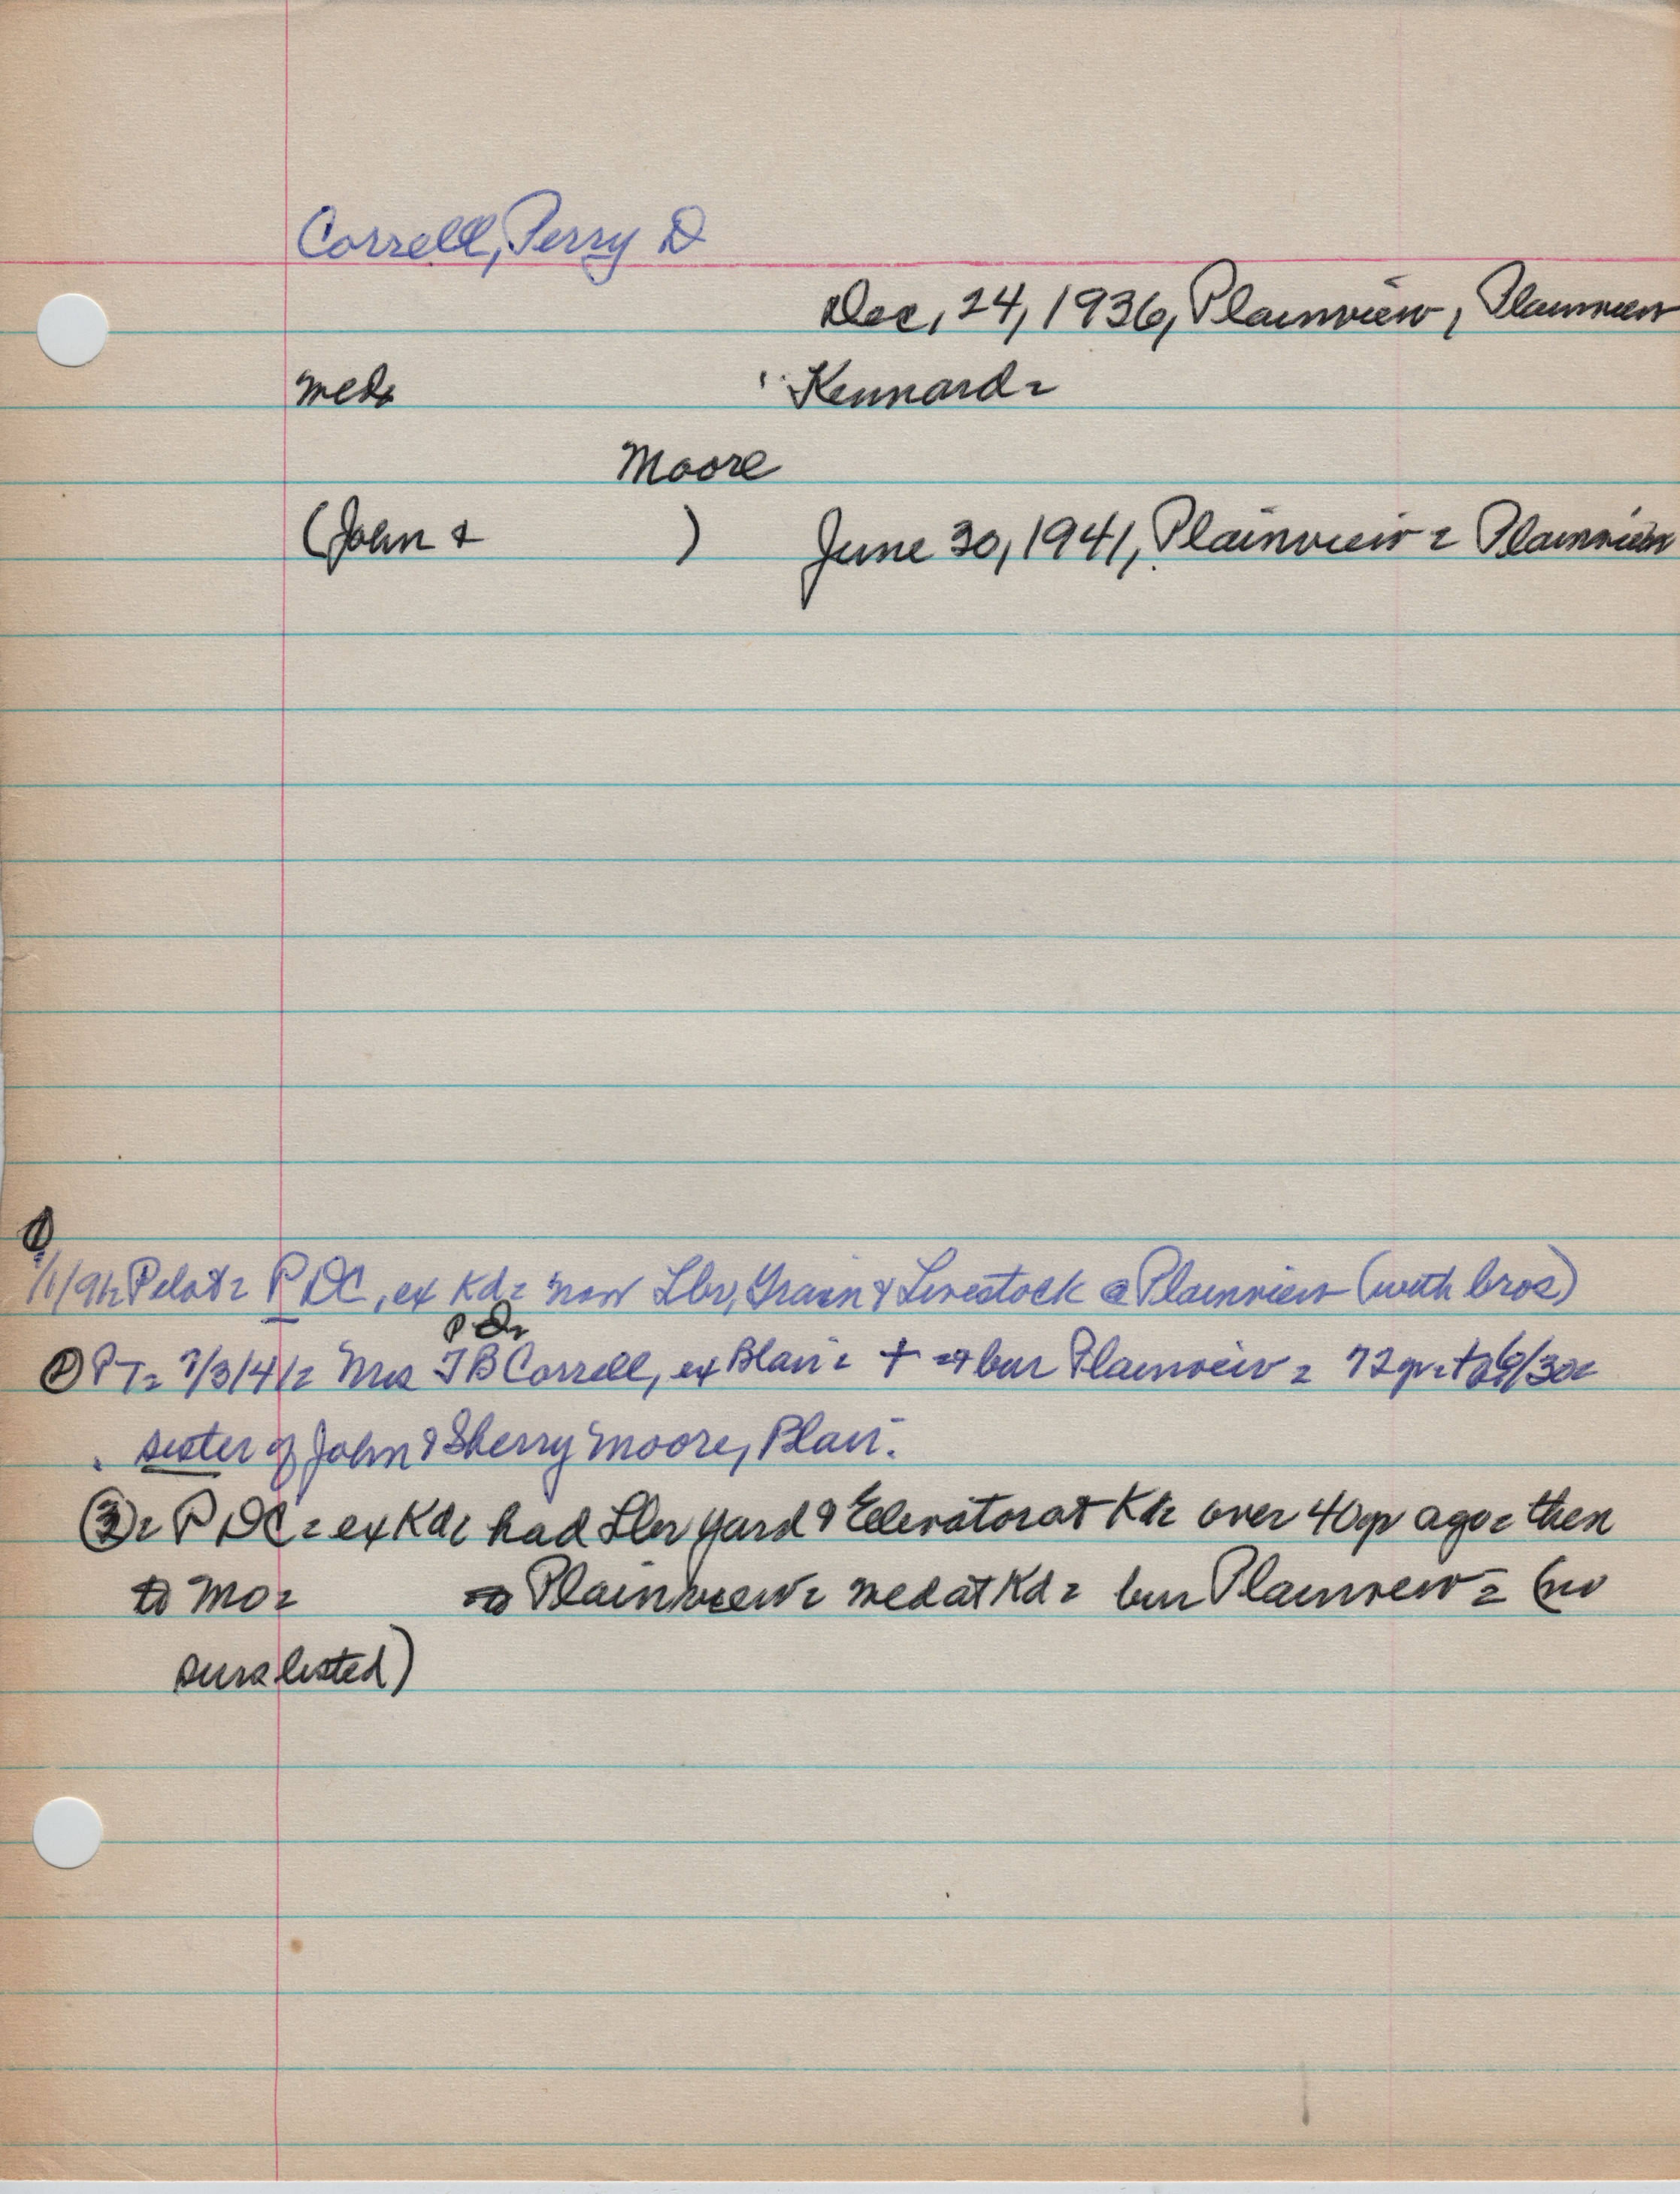 Correll, Perry D
Dec, 24, 1936, Plainview, Plainview
med. Kennard=
Moore
(John & ) June 30, 1941, Plainview = Plainview
①
PDC, ex Kd= now Lbr, Grain & Livestock @ Plainview (with bros)
P D=
② PT= 7/3/41= Mrs J B Correll, ex Blair= + bur Plainview = 72 6/30=
sister of John & Sherry Moore, Blair.
③= P DC = ex Kd= had Lbr yard & Elevator at Kd= over 40yr ago= then
to Mo= Plainview= med at Kd= bur Plainview = (no
survs listed)